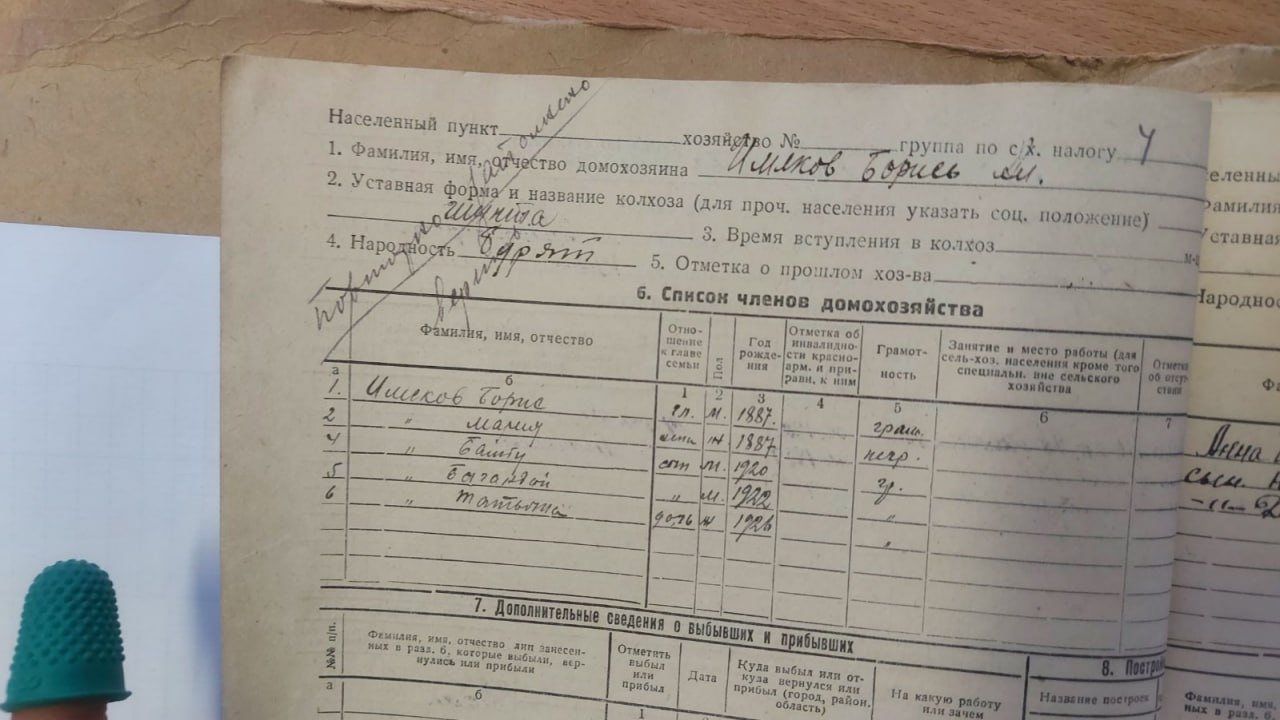 Населенный пункт хозяйство № группа по с/х. налогу 4
1. Фамилия, имя, отчество домохозяина Имеков Борись
2. Уставная форма и название колхоза (для проч. населения указать соц. положение)
3. Время вступления в колхоз м-ц
4. Народность бурят 5. Отметка о прошлом хоз-ва
6. Список членов домохозяйства
Фамилия, имя, отчество Отно-шение к главе семьи Пол Год рожде-ния Отметка об инвалидно-сти красно-арм. и при-равн. к ним Грамот-ность Занятие и место работы (для сель-хоз. населения кроме того специальн. вне сельского хозяйства Отметка об отсут-ствии
а б 1 2 3 4 5 6 7
1. Имеков Борис гл. м. 1887. грам.
2 " Мария жена ж 1887 негр.
4 " сын м. 1920 гр.
5 " " м. 1922 "
6 " Татьяна дочь ж 1926 "
7. Дополнительные сведения о выбывших и прибывших
№№ п/п. Фамилия, имя, отчество лиц занесен-ных в разд. 6, которые выбыли, вер-нулись или прибыли Отметить выбыл или прибыл Дата Куда выбыл или от-куда вернулся или прибыл (город, район, область) На какую работу или зачем
а б 1
8. Постро
Название построек
еленны
Фамилия
Уставная
Народнос
Анна
сын.
Фамилия, имя,
ных в разд. 6,